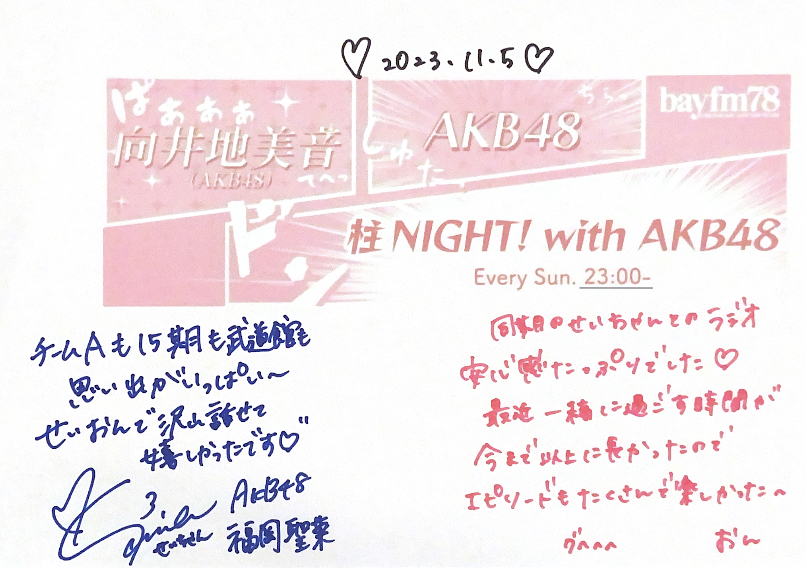 ♡ 2023.11.5 ♡
ぱぁぁぁ
向井地美音
(AKB48)
てへっ
しゅたっ
AKB48
ちらっ
bayfm78
ドン
柱NIGHT! with AKB48
Every Sun. 23:00-
チームAも15期も武道館も
思い出がいっぱい〜
せいおんで沢山話せて
嬉しかったです♡
3
せいちゃん
AKB48
福岡聖菜
同期のせいちゃんとのラジオ
安心感たっぷりでした♡
最近一緒に過ごす時間が
今まで以上に長かったので
エピソードもたくさんで楽しかったへ
グへへへ
おん